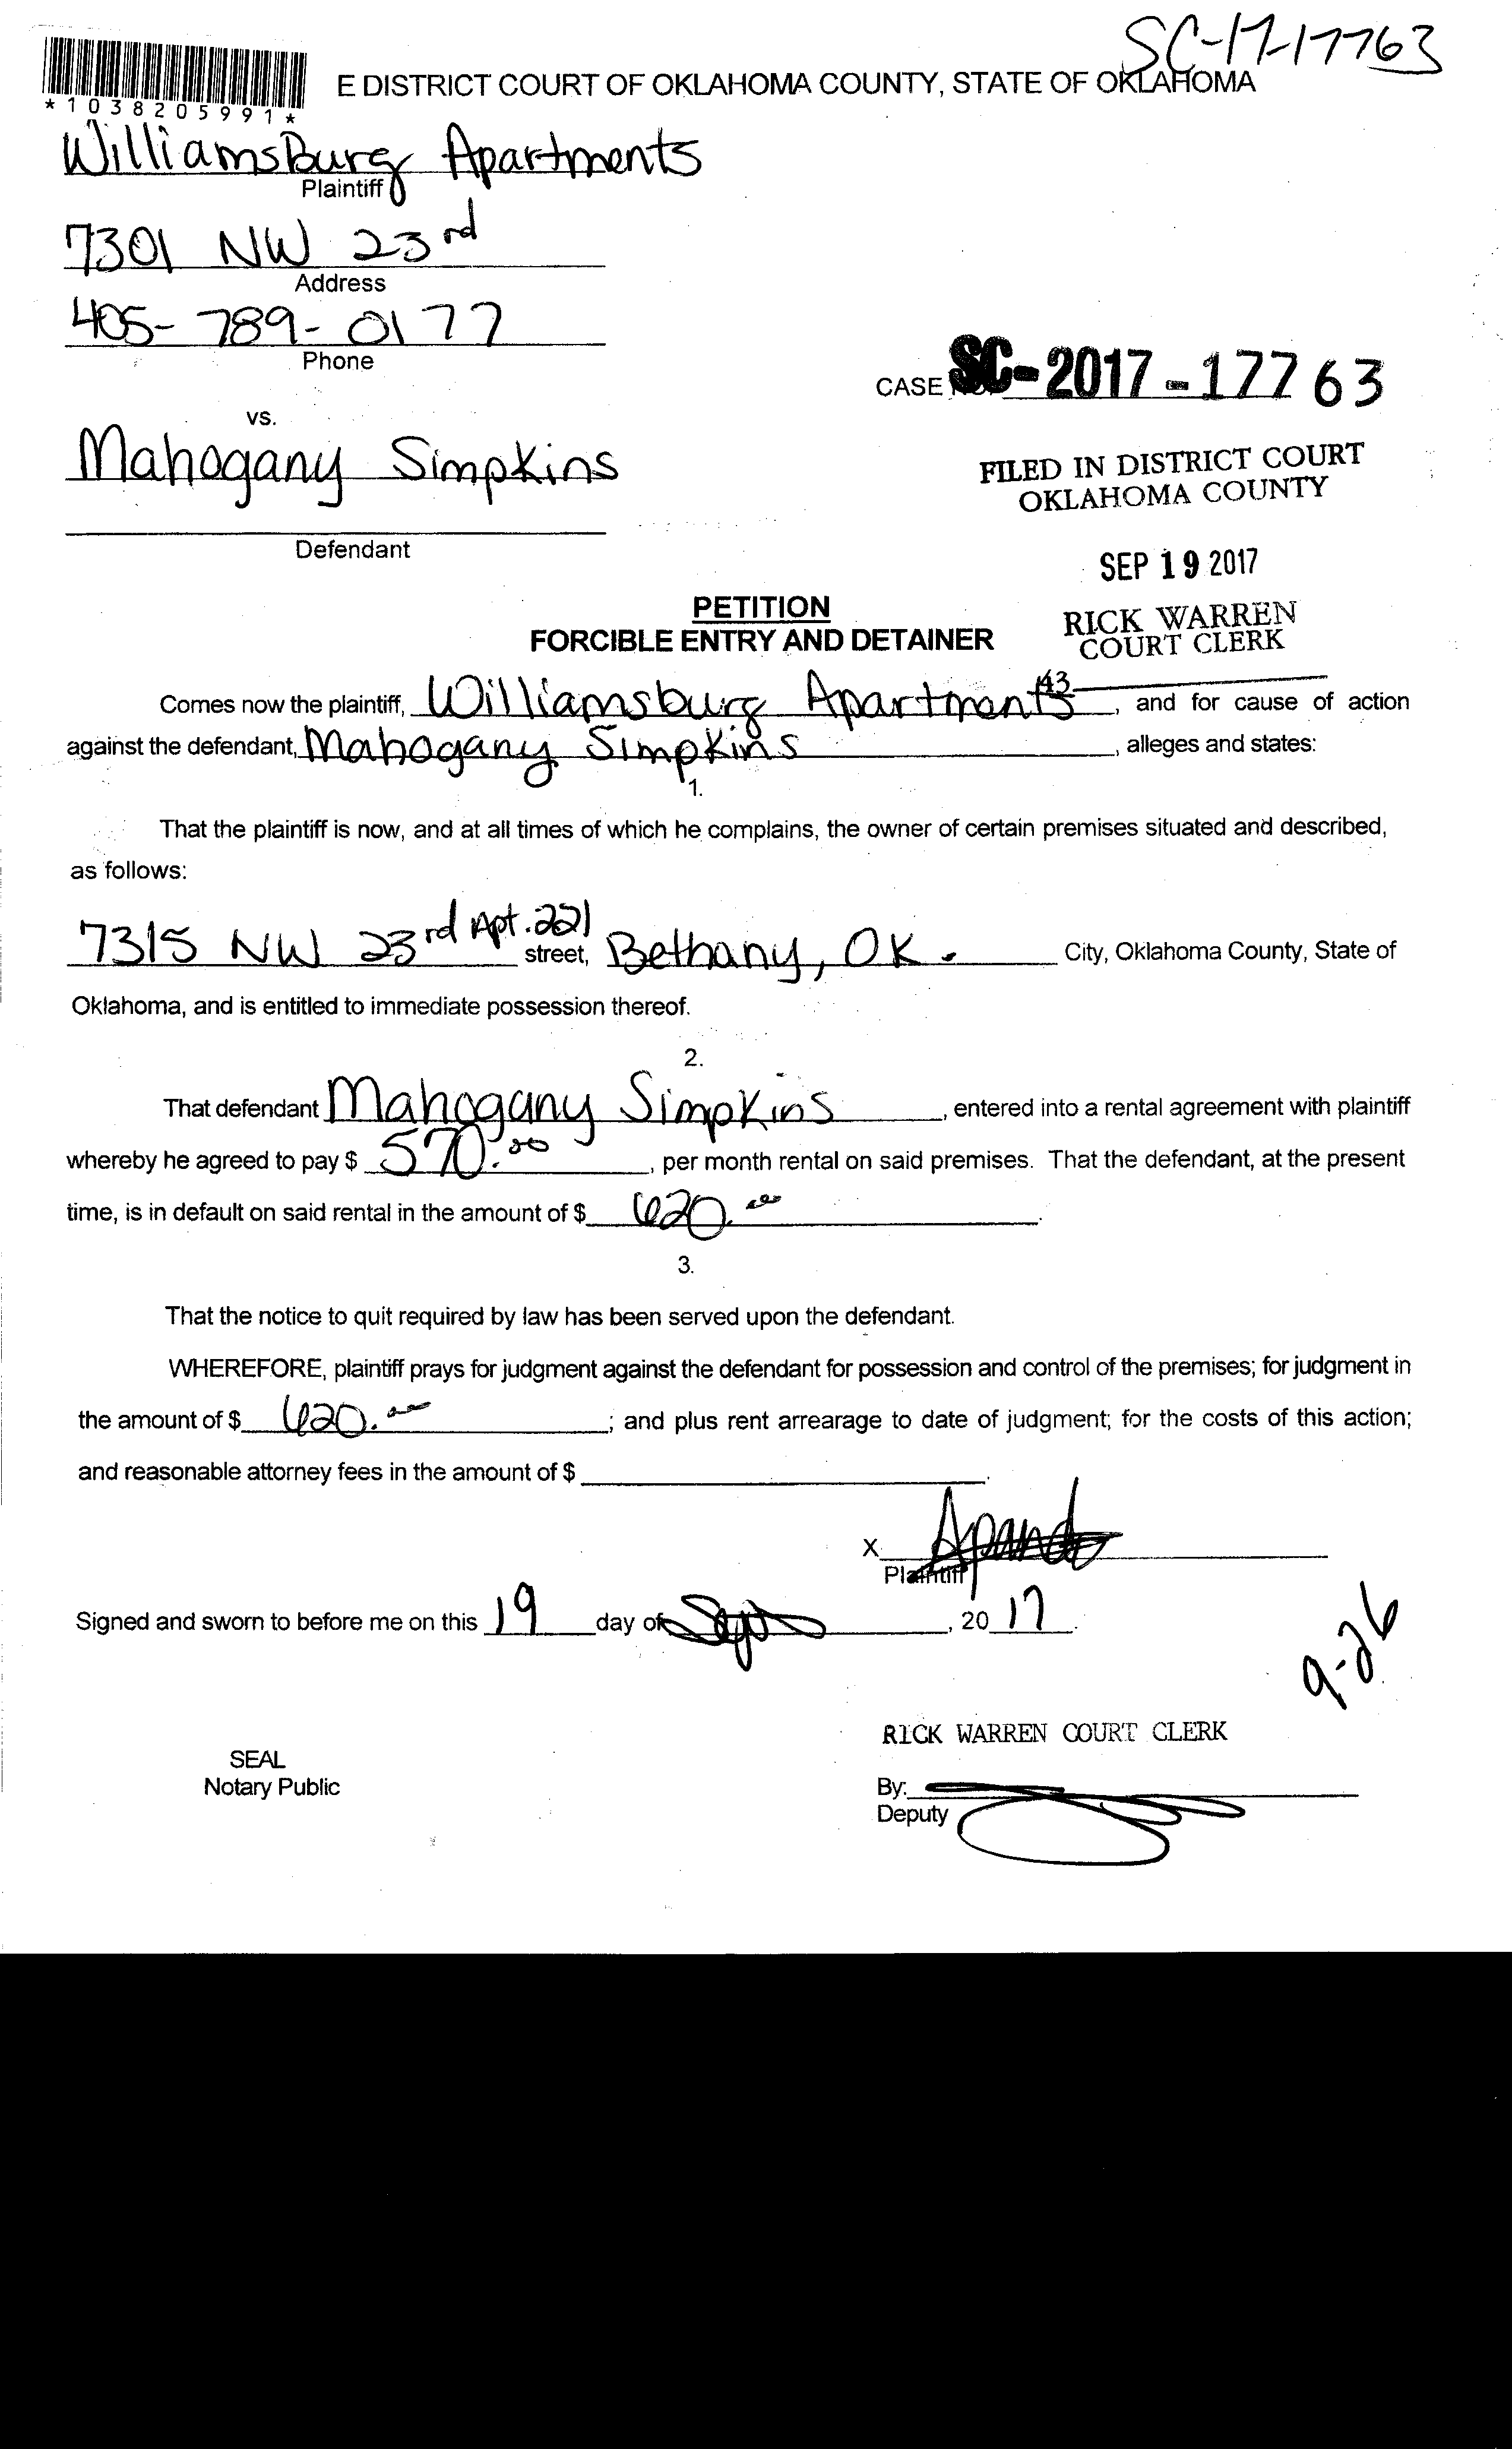 SC-17-17763
E DISTRICT COURT OF OKLAHOMA COUNTY, STATE OF OKLAHOMA
*1038205991*
WilliamsBurg Apartments
Plaintiff
7301 NW 23rd
Address
405-789-0177
Phone
CASE NO. SC-2017-17763
vs.
Mahogany Simpkins
FILED IN DISTRICT COURT
OKLAHOMA COUNTY
Defendant
SEP 19 2017
PETITION
FORCIBLE ENTRY AND DETAINER
RICK WARREN
COURT CLERK
43
Comes now the plaintiff, Williamsburg Apartments, and for cause of action
against the defendant, Mahogany Simpkins, alleges and states:
1.
That the plaintiff is now, and at all times of which he complains, the owner of certain premises situated and described,
as follows:
7315 NW 23rd Apt. 221 street, Bethany, OK. City, Oklahoma County, State of
Oklahoma, and is entitled to immediate possession thereof.
2.
That defendant Mahogany Simpkins, entered into a rental agreement with plaintiff
whereby he agreed to pay $ 570.00, per month rental on said premises. That the defendant, at the present
time, is in default on said rental in the amount of $ 620.00.
3.
That the notice to quit required by law has been served upon the defendant.
WHEREFORE, plaintiff prays for judgment against the defendant for possession and control of the premises; for judgment in
the amount of $ 620.00; and plus rent arrearage to date of judgment; for the costs of this action;
and reasonable attorney fees in the amount of $ .
X
Plaintiff
Signed and sworn to before me on this 19 day of Sept, 20 17.
9-26
RICK WARREN COURT CLERK
SEAL
Notary Public
By:
Deputy